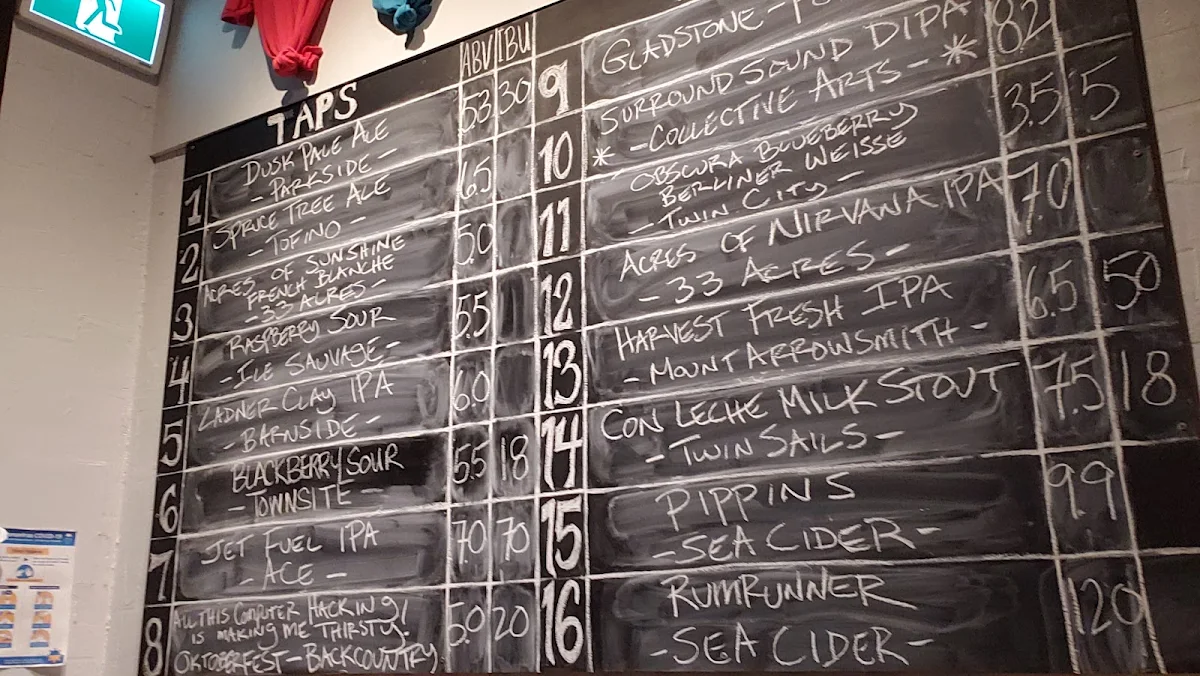 TAPS ABV IBU
1 DUSK PALE ALE 53 30
- PARKSIDE -
2 SPRUCE TREE ALE 65
- TOFINO -
3 ACRES OF SUNSHINE 50
FRENCH BLANCHE
- 33 ACRES -
4 RASPBERRY SOUR 55
- ILE SAUVAGE -
5 LADNER CLAY IPA 60
- BARNSIDE -
6 BLACKBERRY SOUR 55 18
- TOWNSITE -
7 JET FUEL IPA 70 70
- ACE -
8 ALL THIS COMPUTER HACKING! 50 20
IS MAKING ME THIRSTY!
OKTOBERFEST - BACKCOUNTRY
9 GLADSTONE -
10 SURROUND SOUND DIPA 82
* - COLLECTIVE ARTS - *
11 OBSCURA BLUEBERRY 3.5 5
BERLINER WEISSE
- TWIN CITY -
12 ACRES OF NIRVANA IPA 70
- 33 ACRES -
13 HARVEST FRESH IPA 65 50
- MOUNT ARROWSMITH -
14 CON LECHE MILK STOUT 7.5 18
- TWIN SAILS -
15 PIPPINS 99
- SEA CIDER -
16 RUMRUNNER 120
- SEA CIDER -